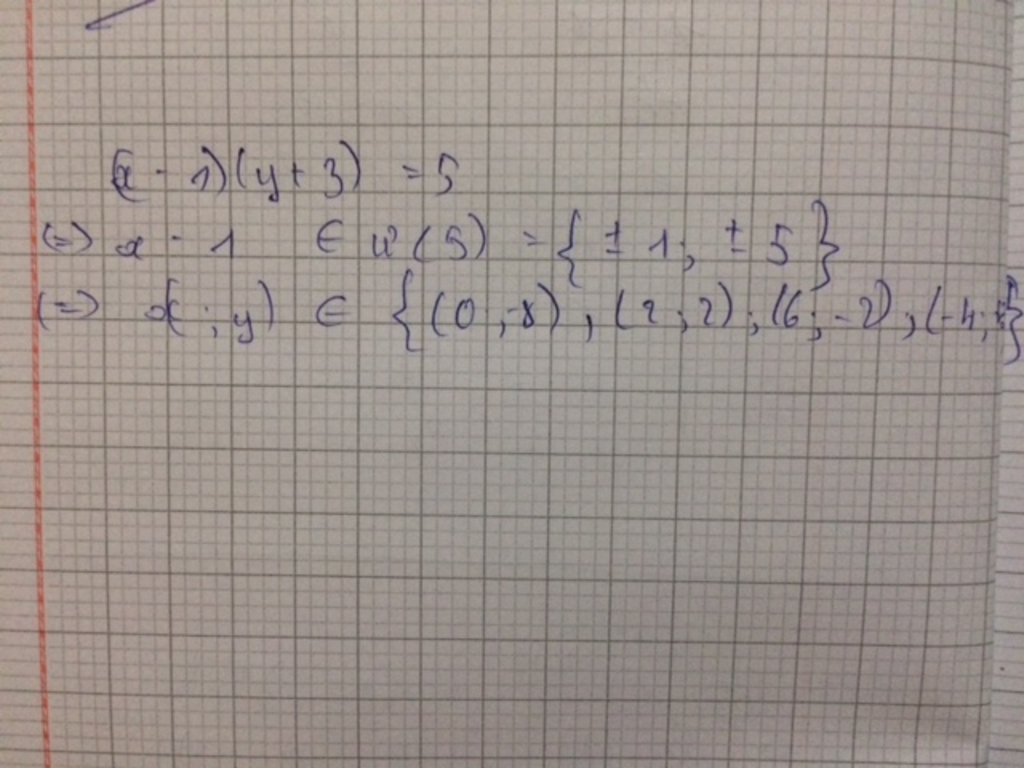 (x - 1)(y + 3) = 5
(=) x - 1 ∈ Ư(5) = { ± 1; ± 5 }
(=) (x; y) ∈ { (0; -8); (2; 2); (6; -2); (-4; }